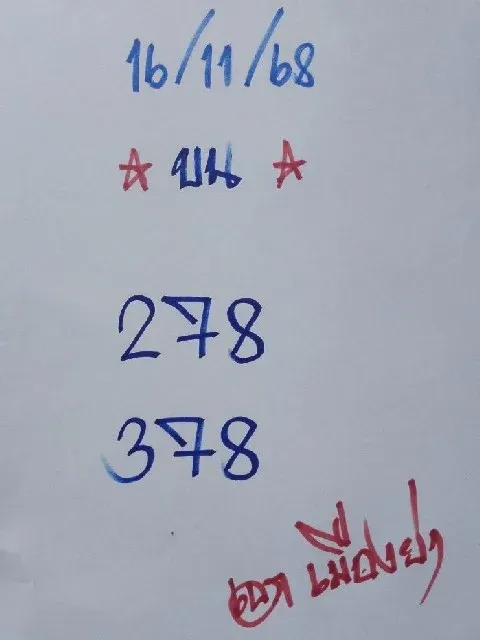 16/11/68
☆ บน ☆
278
378
เมืองย่า